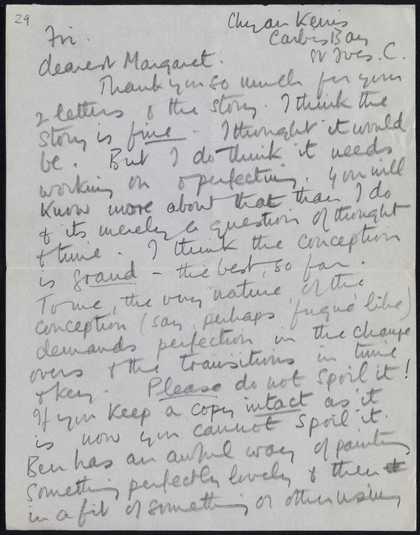 29
Chy an Kerris
Carbis Bay
St Ives. C.
Fri.
dearest Margaret.
Thank you so much for your
2 letters & the story. I think the
story is fine. I thought it would
be. But I do think it needs
working on & perfecting. You will
know more about that than I do
& its merely a question of thought
& time. I think the conception
is grand – the best, so far.
To me, the very nature of the
conception (say, perhaps, fugue like)
demands perfection in the change
overs & the transitions in time
& key. Please do not spoil it!
If you keep a copy intact as it
is now you cannot spoil it.
Ben has an awful way of painting
something perfectly lovely & then
in a fit of something or other using